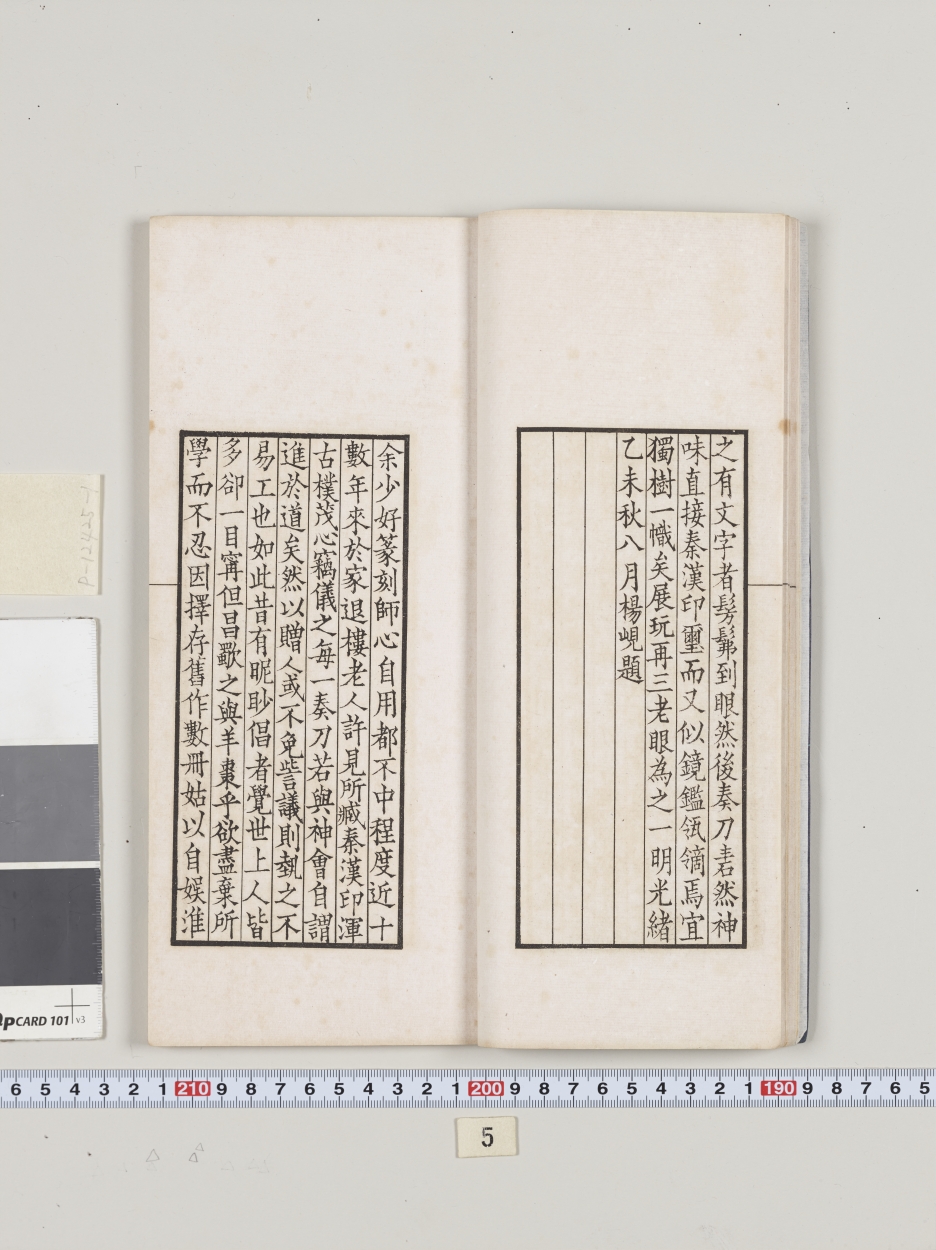 之有文字者髣髴到眼然後奏刀砉然神
味直接秦漢印璽而又似鏡鑑瓴甋焉宜
獨樹一幟矣展玩再三老眼為之一明光緒
乙未秋八月楊峴題
余少好篆刻師心自用都不中程度近十
數年來於家退樓老人許見所臧秦漢印渾
古樸茂心竊儀之每一奏刀若與神會自謂
進於道矣然以贈人或不免訾議則埶之不
易工也如此昔有昵眇倡者覺世上人皆
多卻一目甯但昌歜之與羊棗乎欲盡棄所
學而不忍因擇存舊作數冊姑以自娛淮
P-12425-1
QPCARD 101 v3
6 5 4 3 2 1 210 9 8 7 6 5 4 3 2 1 200 9 8 7 6 5 4 3 2 1 190 9 8 7 6 5
5